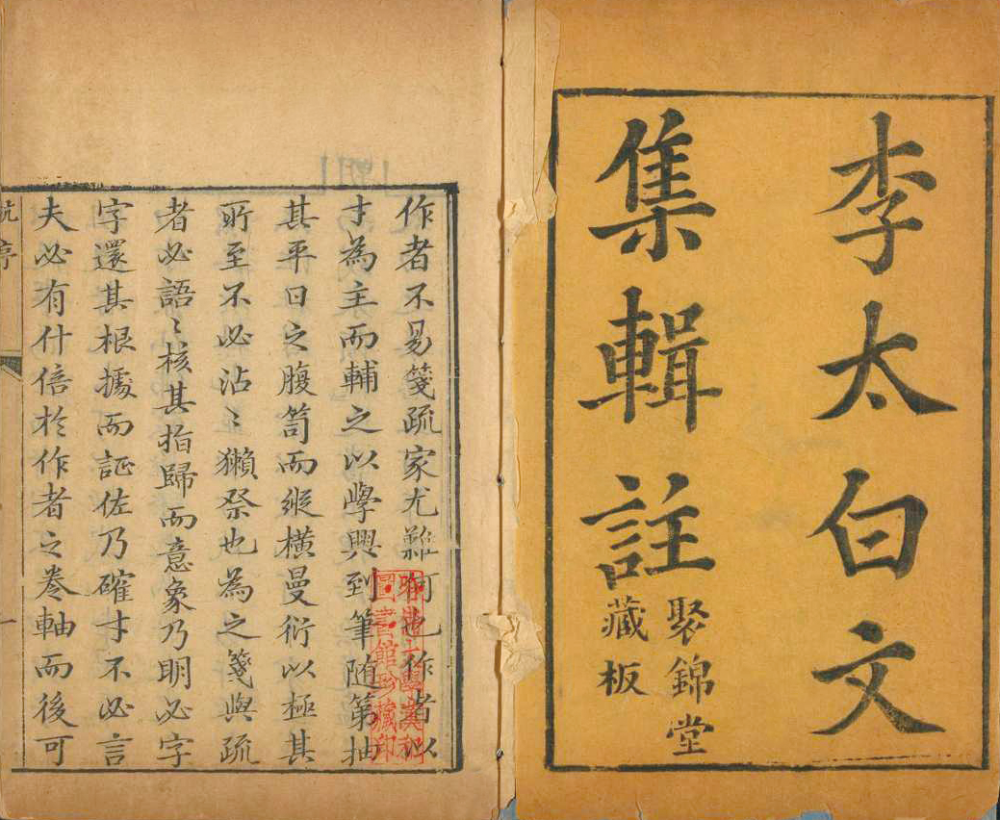 李太白文
集輯註
聚錦堂
藏板
作者不易箋疏家尤難何也作者以
才為主而輔之以學興到筆随第抽
其平日之腹笥而縱橫曼衍以極其
所至不必沾〻獺祭也為之箋與疏
者必語〻核其指歸而意象乃明必字
字還其根據而証佐乃確才不必言
夫必有什倍於作者之卷軸而後可
杭序
一
圖書館珍藏印